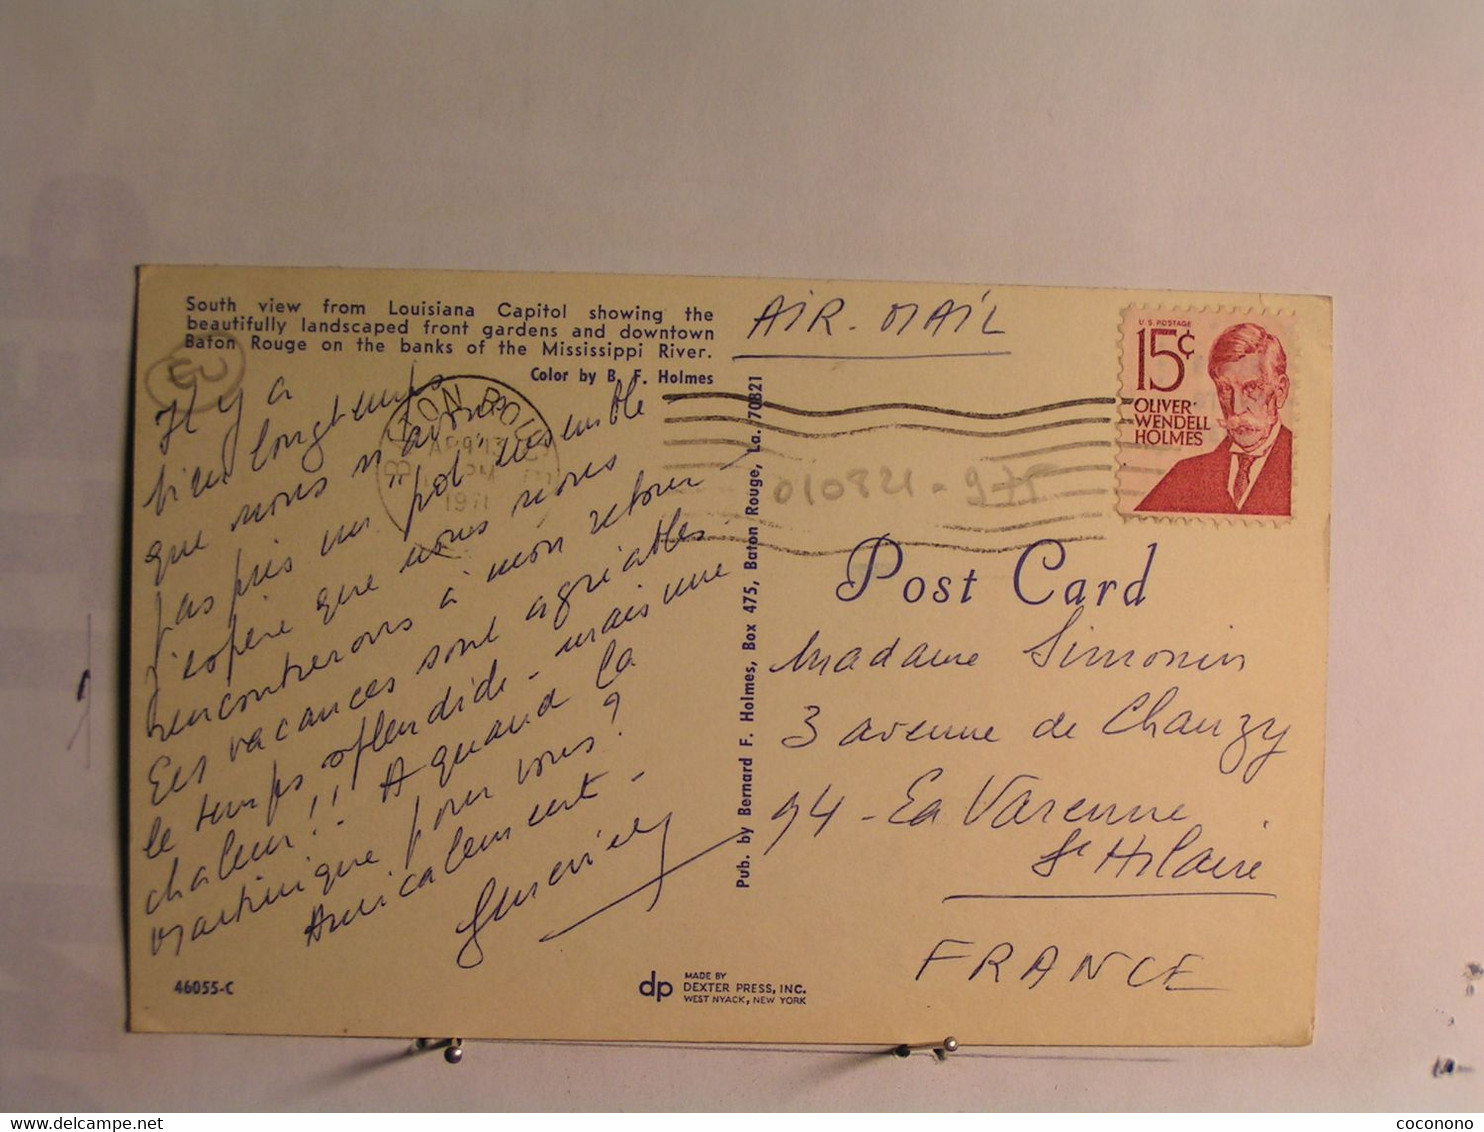 South view from Louisiana Capitol showing the
beautifully landscaped front gardens and downtown
Baton Rouge on the banks of the Mississippi River.
Color by B. F. Holmes
EU
Il y a
bien longtemps
que nous n'avons
pas pris un pot ensemble
j'espère que nous nous
rencontrerons à mon retour -
Les vacances sont agréables -
le temps splendide - mais une
chaleur !! A quand la
Martinique pour vous ?
Amicalement -
46055-C
dp
MADE BY
DEXTER PRESS, INC.
WEST NYACK, NEW YORK
Pub. by Bernard F. Holmes, Box 475, Baton Rouge, La. 70821
AIR. MAIL
TON ROU
PM
1971
U.S. POSTAGE
15¢
OLIVER
WENDELL
HOLMES
010821-975
Post Card
Madame Simonin
3 avenue de Chanzy
94 - La Varenne
St Hilaire
FRANCE
coconono